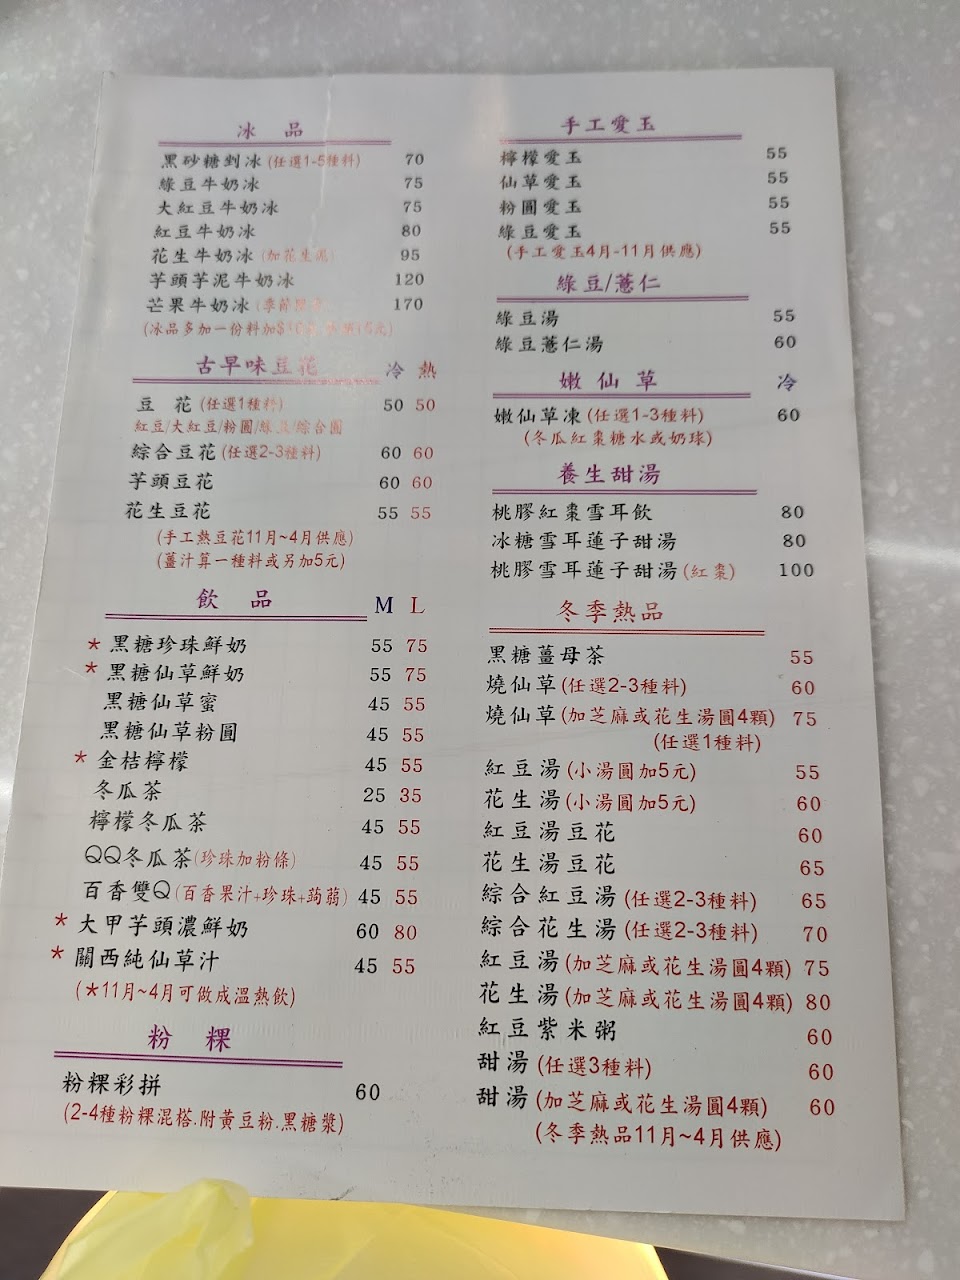 冰 品
黑砂糖剉冰(任選1-5種料) 70
綠豆牛奶冰 75
大紅豆牛奶冰 75
紅豆牛奶冰 80
花生牛奶冰(加花生泥) 95
芋頭芋泥牛奶冰 120
芒果牛奶冰(季節限定) 170
(冰品多加一份料加$10元
古早味豆花 冷 熱
豆 花(任選1種料) 50 50
紅豆/大紅豆/粉圓/綠豆/綜合圓
綜合豆花(任選2-3種料) 60 60
芋頭豆花 60 60
花生豆花 55 55
(手工熱豆花11月~4月供應)
(薑汁算一種料或另加5元)
飲 品 M L
*黑糖珍珠鮮奶 55 75
*黑糖仙草鮮奶 55 75
黑糖仙草蜜 45 55
黑糖仙草粉圓 45 55
*金桔檸檬 45 55
冬瓜茶 25 35
檸檬冬瓜茶 45 55
QQ冬瓜茶(珍珠加粉條) 45 55
百香雙Q(百香果汁+珍珠+蒟蒻) 45 55
*大甲芋頭濃鮮奶 60 80
*關西純仙草汁 45 55
(*11月~4月可做成溫熱飲)
粉 粿
粉粿彩拼 60
(2-4種粉粿混搭.附黃豆粉.黑糖漿)
手工愛玉
檸檬愛玉 55
仙草愛玉 55
粉圓愛玉 55
綠豆愛玉 55
(手工愛玉4月-11月供應)
綠豆/薏仁
綠豆湯 55
綠豆薏仁湯 60
嫩仙草 冷
嫩仙草凍(任選1-3種料) 60
(冬瓜紅棗糖水或奶球)
養生甜湯
桃膠紅棗雪耳飲 80
冰糖雪耳蓮子甜湯 80
桃膠雪耳蓮子甜湯(紅棗) 100
冬季熱品
黑糖薑母茶 55
燒仙草(任選2-3種料) 60
燒仙草(加芝麻或花生湯圓4顆) 75
(任選1種料)
紅豆湯(小湯圓加5元) 55
花生湯(小湯圓加5元) 60
紅豆湯豆花 60
花生湯豆花 65
綜合紅豆湯(任選2-3種料) 65
綜合花生湯(任選2-3種料) 70
紅豆湯(加芝麻或花生湯圓4顆) 75
花生湯(加芝麻或花生湯圓4顆) 80
紅豆紫米粥 60
甜湯(任選3種料) 60
甜湯(加芝麻或花生湯圓4顆) 60
(冬季熱品11月~4月供應)